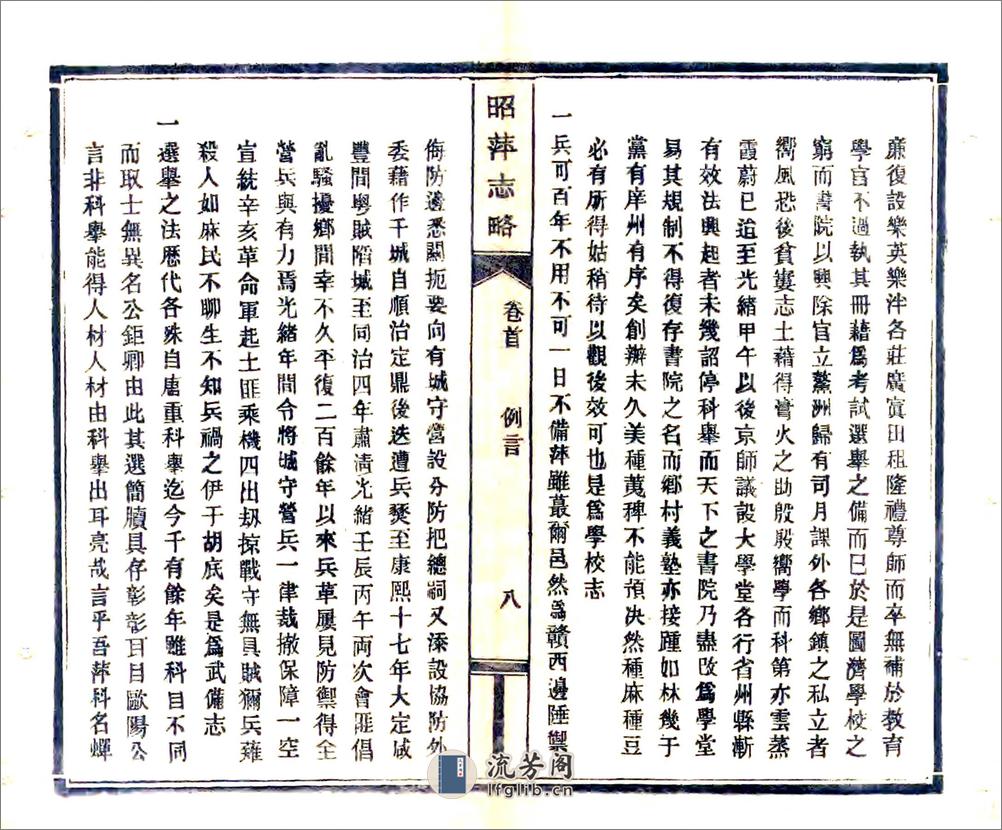 廉復設樂英樂泮各莊廣寘田租隆禮尊師而卒無補於教育
學官不過執其冊藉爲考試選舉之備而已於是圖濟學校之
窮而書院以興除官立鰲洲歸有司月課外各鄉鎮之私立者
嚮風恐後貧寠志士藉得膏火之助殷殷嚮學而科第亦雲蒸
霞蔚已迨至光緒甲午以後京師議設大學堂各行省州縣漸
有效法興起者未幾詔停科舉而天下之書院乃盡改爲學堂
易其規制不得復存書院之名而鄉村義塾亦接踵如林幾于
黨有庠州有序矣創辦未久美種荑稗不能預决然種麻種豆
必有所得姑稍待以觀後效可也是爲學校志
一兵可百年不用不可一日不備萍雖蕞爾邑然爲贛西邊陲禦
昭萍志略
卷首　例言
八
侮防邊悉關扼要向有城守營設分防把總祠又添設協防外
委藉作干城自順治定鼎後迭遭兵燹至康熙十七年大定咸
豐間粤賊陷城至同治四年肅清光緒壬辰丙午兩次會匪倡
亂騷擾鄉間幸不久平復二百餘年以來兵革屢見防禦得全
營兵與有力焉光緒年間令將城守營兵一律裁撤保障一空
宣統辛亥革命軍起土匪乘機四出刼掠戰守無具賊彌兵薙
殺人如麻民不聊生不知兵禍之伊于胡底矣是爲武備志
一選舉之法歷代各殊自唐重科舉迄今千有餘年雖科目不同
而取士無異名公鉅卿由此其選簡牘具存彰彰耳目歐陽公
言非科舉能得人材人材由科舉出耳亮哉言乎吾萍科名蟬
流芳阁
lfglib.cn